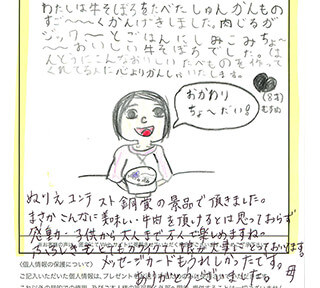 わたしは牛そぼろをたべたしゅんかんもの
すご〜〜〜くかんげきしました。肉じるが
ジック〜〜とごはんにしみこみちょ〜
〜〜おいしい牛そぼろでした。ほ
んとうにこんなおいしいたべものを作って
くれてる人に心よりかんしゃいたします。
(8才)
むすめ
おかわり
ちょ〜だい!
ぬりえコンテスト銅賞の景品で頂きました。
まさかこんなに美味しい牛肉を頂けるとは思っておらず
感動…子供から大人まで万人で楽しめますね。
とてもカワイク、1枚が大事にとっております。
〈個人情報の保護について〉
メッセージカードもうれしかったです。
ご記入いただいた個人情報は、プレゼント
ありがとうございました。 母